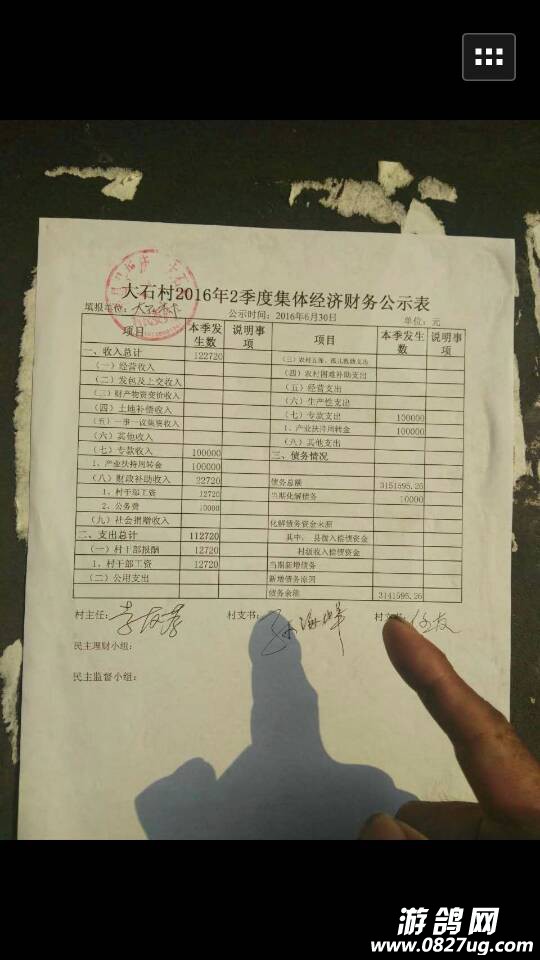 大石村2016年2季度集体经济财务公示表
填报单位：大石村 公示时间：2016年6月30日 单位：元
项目 本季发生数 说明事项 项目 本季发生数 说明事项
一、收入总计 122720 （三）农村五保、孤儿救助支出
（一）经营收入 （四）农村困难补助支出
（二）发包及上交收入 （五）经营支出
（三）财产物资变价收入 （六）生产性支出
（四）土地补偿收入 （七）专款支出 100000
（五）一事一议筹资收入 1、产业扶持周转金 100000
（六）其他收入 （八）其他支出
（七）专款收入 100000 三、债务情况
1、产业扶持周转金 100000
（八）财政补助收入 22720 债务总额 3151595.26
1、村干部工资 12720 当期化解债务 10000
2、公务费 10000
（九）社会捐赠收入 化解债务资金来源
二、支出总计 112720 其中：县级入偿债资金
（一）村干部报酬 12720 村级收入偿债资金
1、村干部工资 12720 当期新增债务
（二）公用支出 新增债务原因
债务余额 3141595.26
村主任： 村支书： 村文书：
民主理财小组：
民主监督小组：
游鸽网
www.0827ug.com